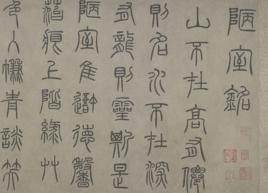 陋室銘
山不在高有僊
則名水不在深
有龍則靈斯是
陋室惟吾德馨
苔痕上階綠艸
色入簾青談笑